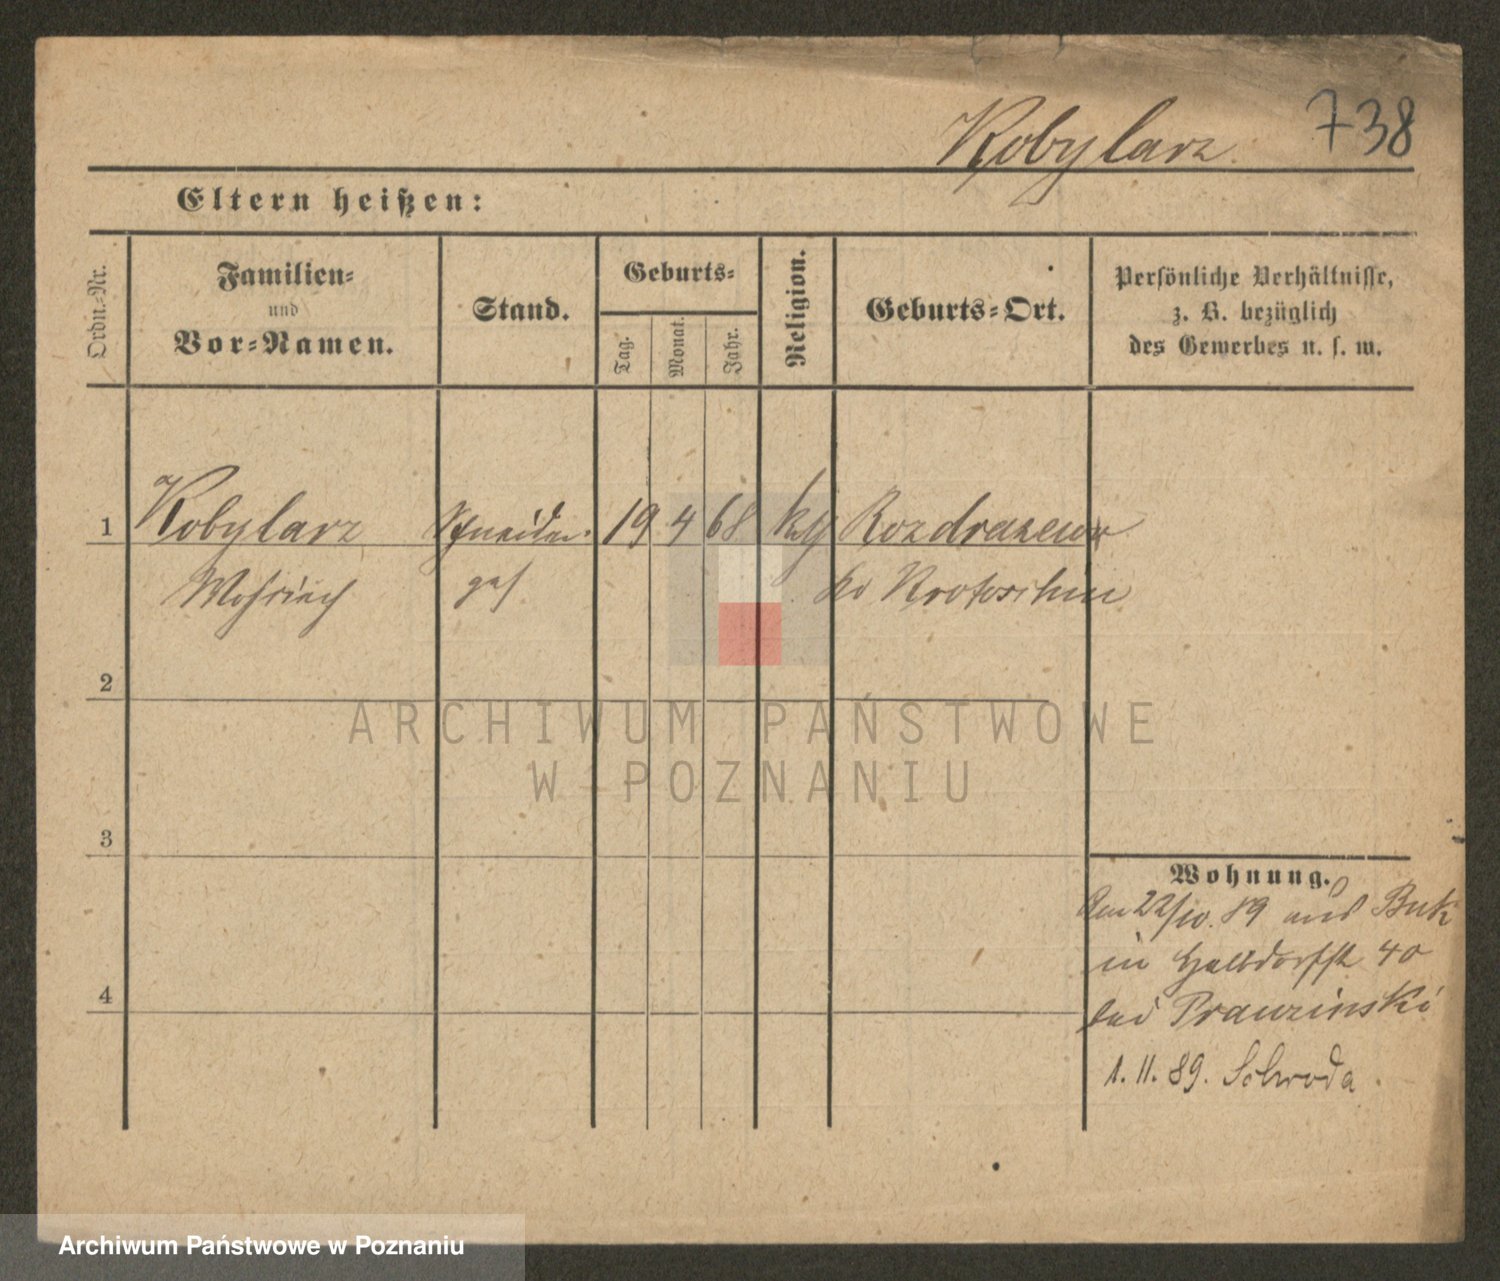 Kobylarz 738
Eltern heißen:
Ordn.-Nr.
Familien-
und
Vor-Namen.
Stand.
Geburts-
Tag.
Monat.
Jahr.
Religion.
Geburts-Ort.
Persönliche Verhältnisse,
z. B. bezüglich
des Gewerbes u. s. w.
1 Kobylarz Schneider 19 4 68 Rozdrazewo
ges Krotoschin
2
ARCHIWUM PAŃSTWOWE
W POZNANIU
3
4
Wohnung.
22/10. 89 aus Buk
in Halbdorfst 40
bei Prauzinski
1. 11. 89. Schroda
Archiwum Państwowe w Poznaniu